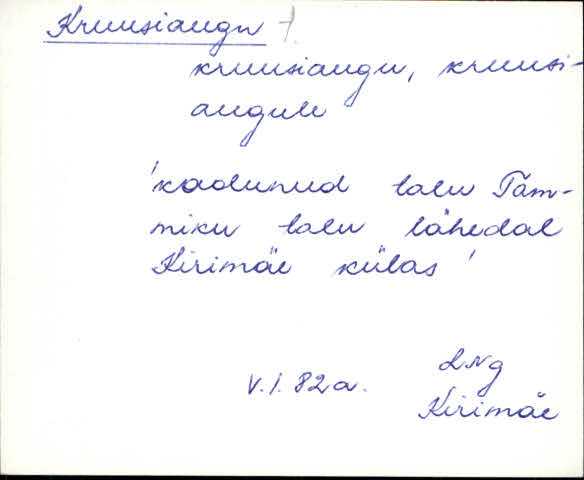 Kruusiaugu t.
kruusiaugu, kruusi-
augule
'kadunud talu Tam-
miku talu lähedal
Kirimäe külas'
LNg
V.I. 82a.
Kirimäe